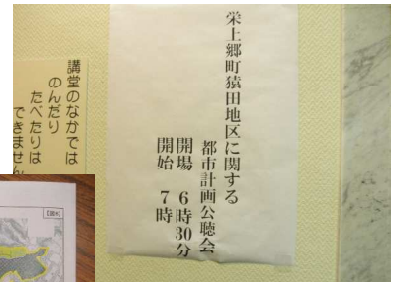 栄上郷町猿田地区に関する
都市計画公聴会
開場　6時30分
開始　7時
講堂のなかでは
のんだり
たべたりは
できません